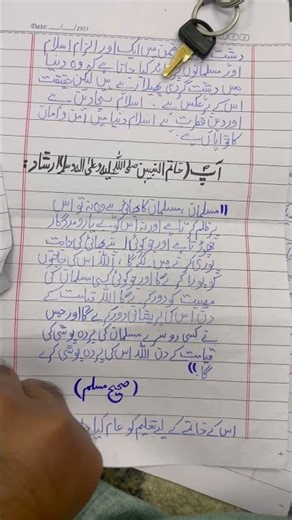 Date: __/__/20__
دہشت گردی کے ضمن میں ایک اور الزام اسلام
اور مسلمانوں پر عائد کیا جاتا ہے کہ وہ دنیا
میں دہشت گردی پھیلا رہے ہیں لیکن حقیقت
اس کے برعکس ہے۔ اسلام سچا دین ہے
اور دین فطرت ہے اسلام دنیا میں امن و امان
کا خواہاں ہے۔
آپ (خاتم النبیین صلی اللہ علیہ وعلی آلہ وسلم) کا ارشاد:
"مسلمان مسلمان کا بھائی ہے وہ نہ تو اس
پر ظلم کرتا ہے اور نہ اس کو بے یارو مددگار
چھوڑتا ہے اور جو کوئی اپنے بھائی کی حاجت
پوری کرنے میں لگے گا، اللہ اس کی حاجتوں
کو پورا کرے گا اور جو کوئی کسی مسلمان کی
مصیبت کو دور کرے گا اللہ قیامت کے
دن اس کی پریشانی دور کرے گا اور جس
نے کسی دوسرے مسلمان کی پردہ پوشی کی
قیامت کے دن اللہ اس کی پردہ پوشی کرے
گا"
(صحیح مسلم)
اس کے خاتمے کے لیے تعلیم کو عام کیا